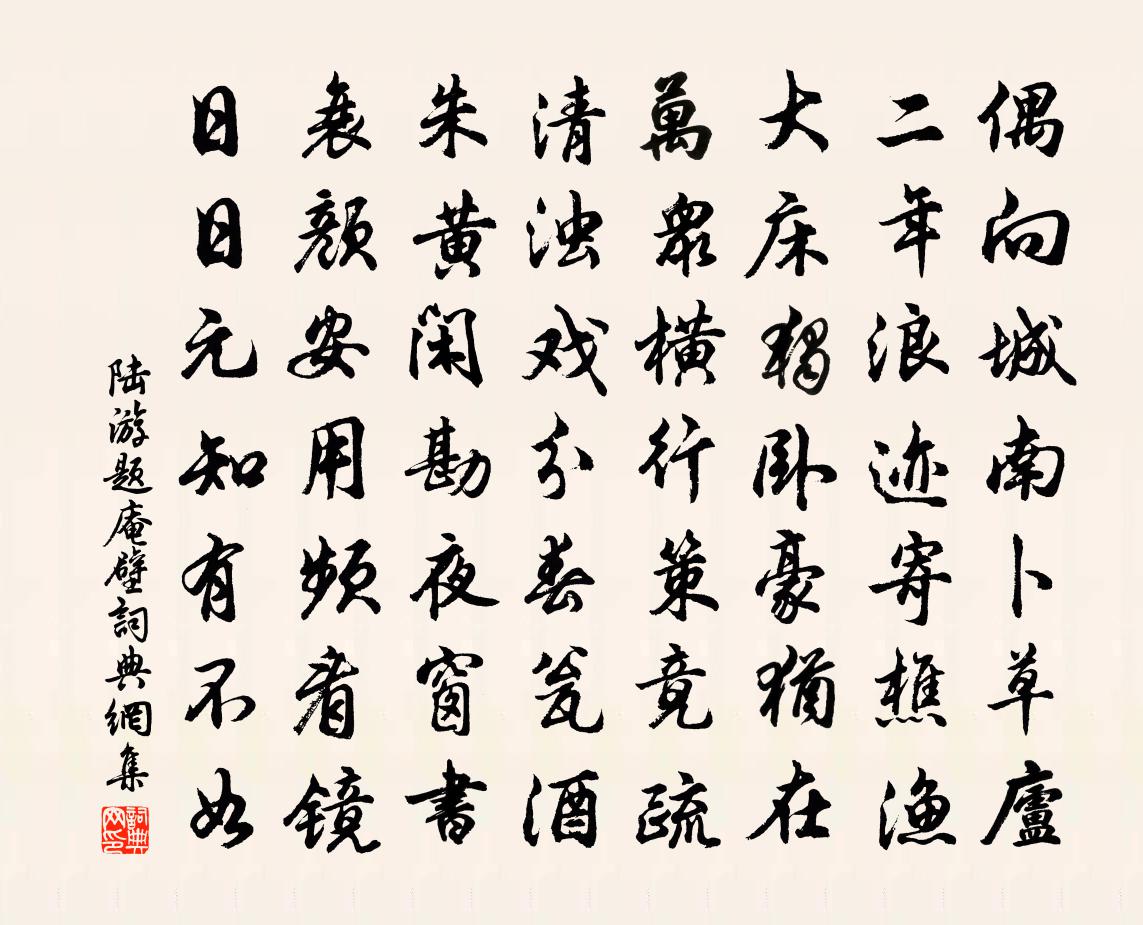 偶向城南卜草廬
二年浪迹寄樵漁
大床獨卧豪猶在
萬衆橫行策竟疏
清浊戏分春瓮酒
朱黄闲勘夜窗書
衰顔安用频看镜
日日元知有不如
陆游题庵壁詞典網集
詞典网印